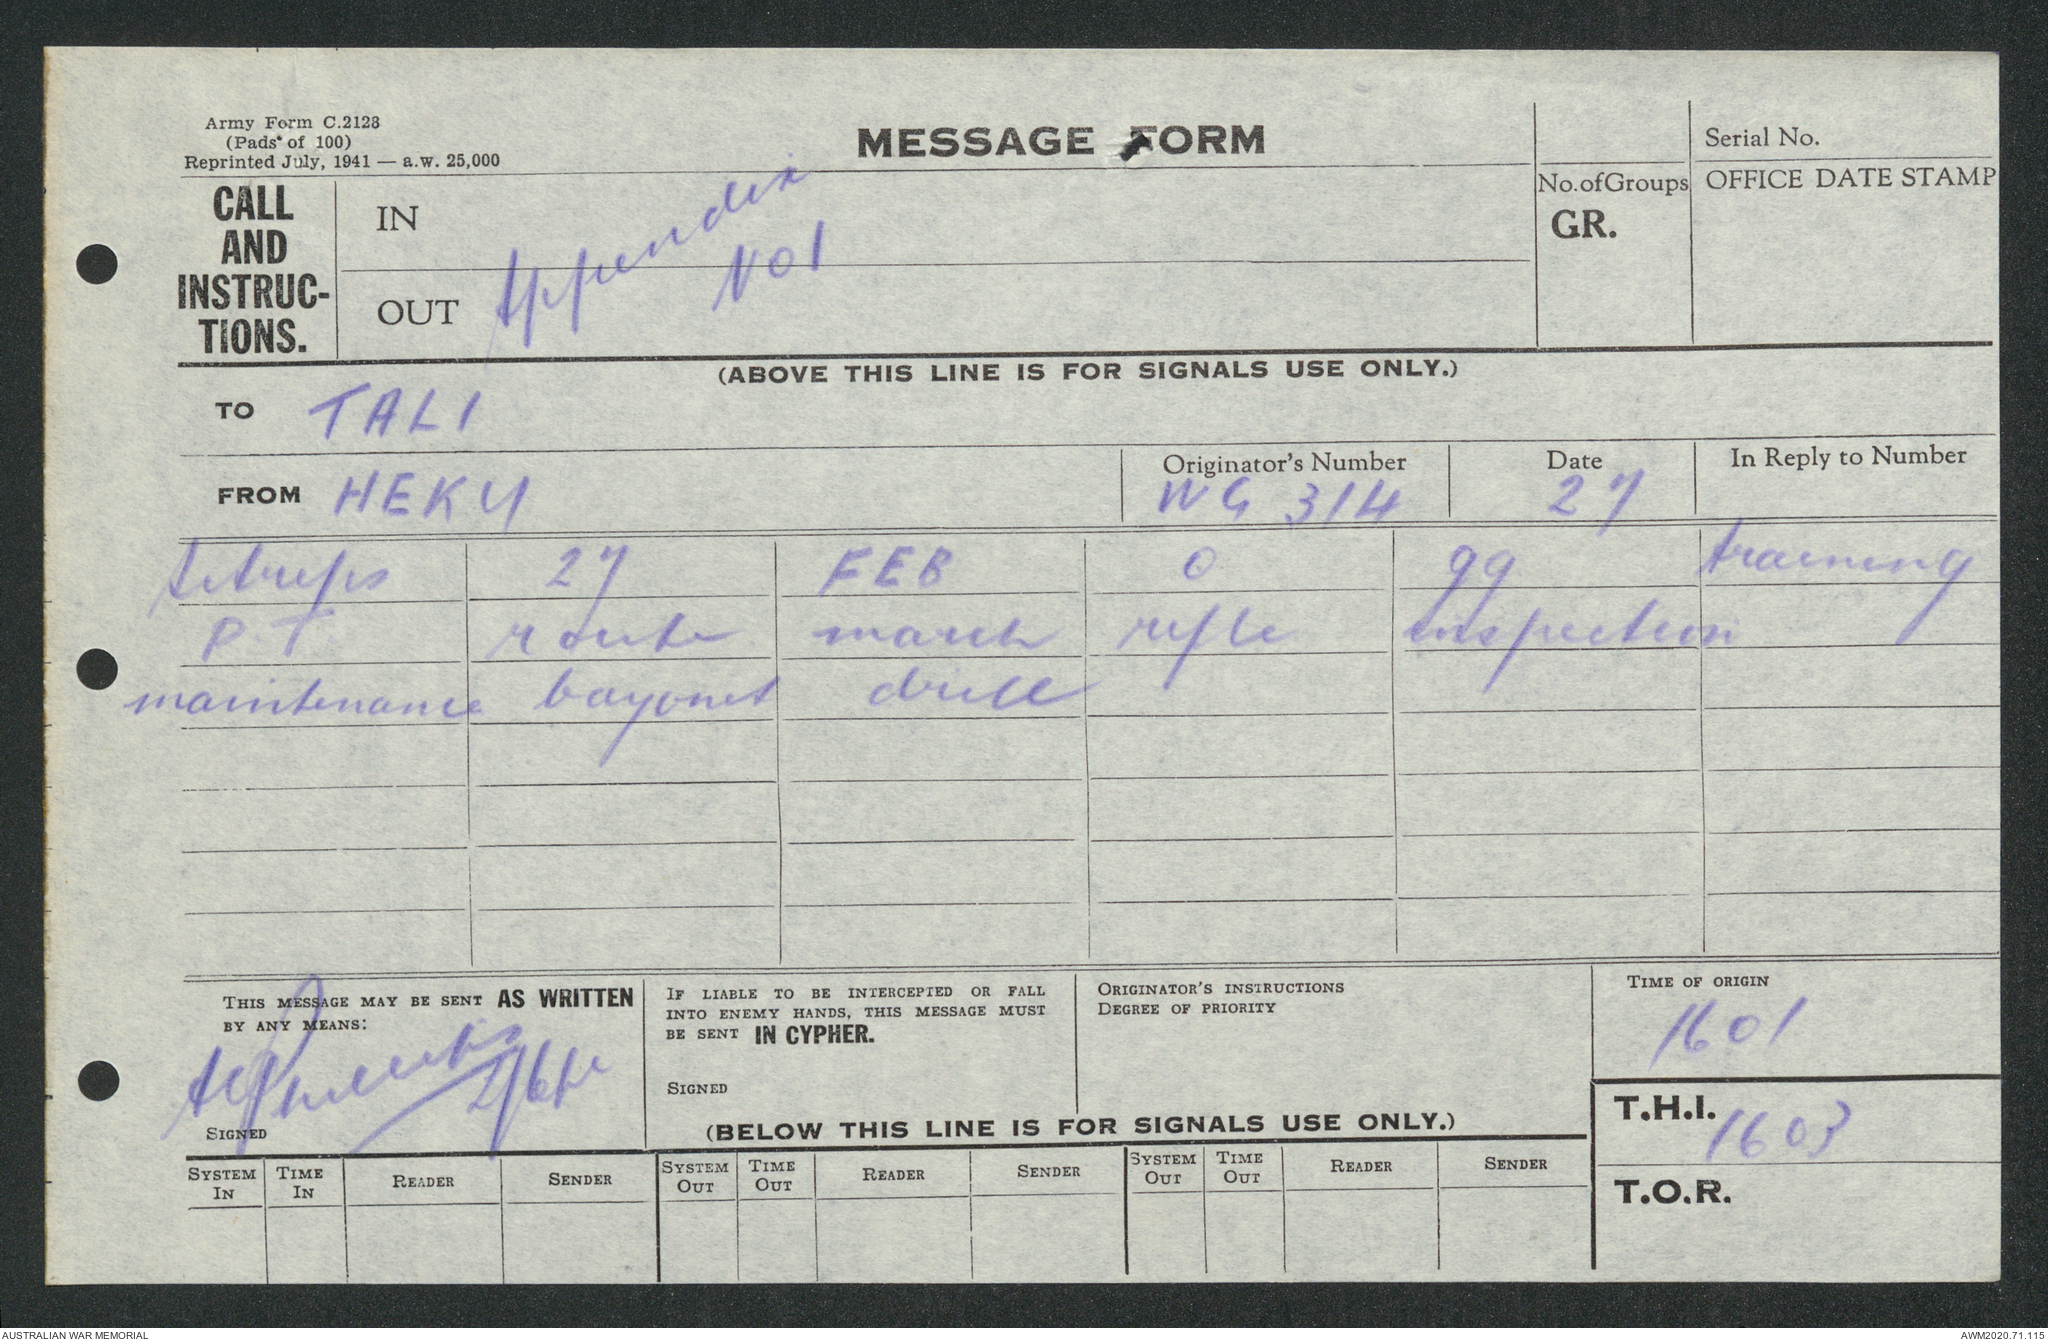 Army Form C.2128
(Pads of 100)
Reprinted July, 1941 — a.w. 25,000
MESSAGE FORM
Serial No.
CALL AND INSTRUC-TIONS.
IN
OUT
Appendix
No 1
No. of Groups
GR.
OFFICE DATE STAMP
(ABOVE THIS LINE IS FOR SIGNALS USE ONLY.)
TO TALI
FROM HEKU
Originator's Number
WG 314
Date
27
In Reply to Number
Sitreps 27 FEB 0 99 training
P.T. route march rifle inspection
maintenance bayonet drill
THIS MESSAGE MAY BE SENT AS WRITTEN
BY ANY MEANS:
SIGNED
IF LIABLE TO BE INTERCEPTED OR FALL
INTO ENEMY HANDS, THIS MESSAGE MUST
BE SENT IN CYPHER.
SIGNED
ORIGINATOR'S INSTRUCTIONS
DEGREE OF PRIORITY
TIME OF ORIGIN
1601
T.H.I.
1603
T.O.R.
(BELOW THIS LINE IS FOR SIGNALS USE ONLY.)
SYSTEM IN TIME IN READER SENDER SYSTEM OUT TIME OUT READER SENDER SYSTEM OUT TIME OUT READER SENDER
AUSTRALIAN WAR MEMORIAL
AWM2020.71.115